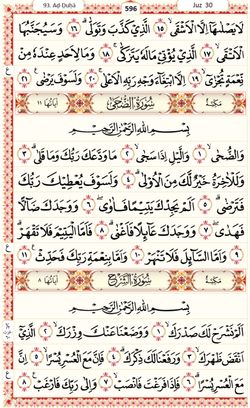 93. Ad-Duhā 596 Juz 30
لَا يَصْلٰىهَآ اِلَّا الْاَشْقَى ١٥ الَّذِيْ كَذَّبَ وَتَوَلّٰى ١٦ وَسَيُجَنَّبُهَا
الْاَتْقَى ١٧ الَّذِيْ يُؤْتِيْ مَالَهٗ يَتَزَكّٰى ١٨ وَمَا لِاَحَدٍ عِنْدَهٗ مِنْ
نِّعْمَةٍ تُجْزٰٓى ١٩ اِلَّا ابْتِغَآءَ وَجْهِ رَبِّهِ الْاَعْلٰى ٢٠ وَلَسَوْفَ يَرْضٰى ٢١
مَكِّيَّة سُوْرَةُ الضُّحٰى اٰيَاتُهَا ١١
بِسْمِ اللّٰهِ الرَّحْمٰنِ الرَّحِيْمِ
وَالضُّحٰى ١ وَالَّيْلِ اِذَا سَجٰى ٢ مَا وَدَّعَكَ رَبُّكَ وَمَا قَلٰى ٣
وَلَلْاٰخِرَةُ خَيْرٌ لَّكَ مِنَ الْاُوْلٰى ٤ وَلَسَوْفَ يُعْطِيْكَ رَبُّكَ
فَتَرْضٰى ٥ اَلَمْ يَجِدْكَ يَتِيْمًا فَاٰوٰى ٦ وَوَجَدَكَ ضَآلًّا
فَهَدٰى ٧ وَوَجَدَكَ عَآئِلًا فَاَغْنٰى ٨ فَاَمَّا الْيَتِيْمَ فَلَا تَقْهَرْ ٩
وَاَمَّا السَّآئِلَ فَلَا تَنْهَرْ ١٠ وَاَمَّا بِنِعْمَةِ رَبِّكَ فَحَدِّثْ ١١
مَكِّيَّة سُوْرَةُ الشَّرْحِ اٰيَاتُهَا ٨
بِسْمِ اللّٰهِ الرَّحْمٰنِ الرَّحِيْمِ
اَلَمْ نَشْرَحْ لَكَ صَدْرَكَ ١ وَوَضَعْنَا عَنْكَ وِزْرَكَ ٢ الَّذِيْٓ
اَنْقَضَ ظَهْرَكَ ٣ وَرَفَعْنَا لَكَ ذِكْرَكَ ٤ فَاِنَّ مَعَ الْعُسْرِ يُسْرًا ٥ اِنَّ
مَعَ الْعُسْرِ يُسْرًا ٦ فَاِذَا فَرَغْتَ فَانْصَبْ ٧ وَاِلٰى رَبِّكَ فَارْغَبْ ٨